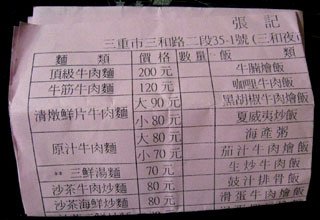 張記
三重市三和路二段35-1號(三和夜
麵類 價格 數量 飯類
頂級牛肉麵 200元 牛腩燴飯
牛筋牛肉麵 120元 咖哩牛肉飯
清燉鮮片牛肉麵 大90元 黑胡椒牛肉燴飯
小80元 夏威夷炒飯
原汁牛肉麵 大80元 海產粥
小70元 茄汁牛肉燴飯
三鮮湯麵 70元 生炒牛肉飯
沙茶牛肉炒麵 80元 豉汁排骨飯
沙茶海鮮炒麵 80元 滑蛋牛肉燴飯